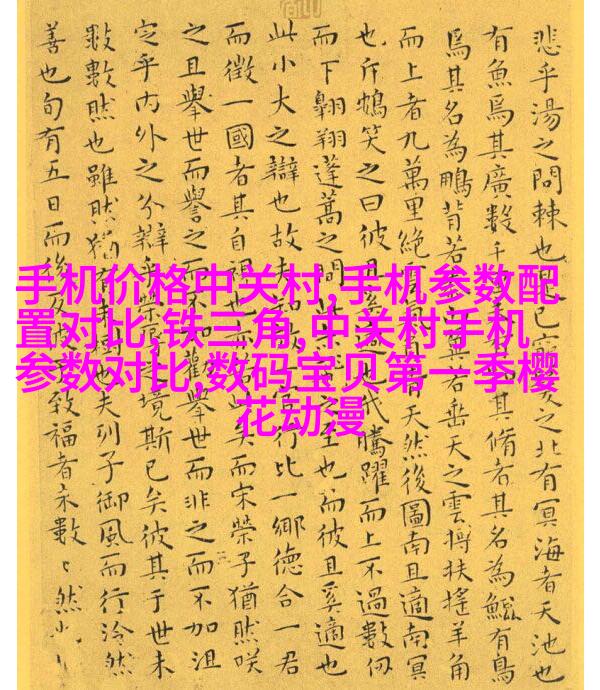 手机价格中关村,手机参数配
置对比,铁三角,中关村手机
参数对比,数码宝贝第一季樱
花动漫
悲乎湯之問棘也已窮髮之北有冥海者天池也
有魚焉其廣數千其脩者其名為鯤有鳥
焉其名為鵬背若翼若垂天之雲摶扶搖羊角
而上者九萬里絕天然後圖南且適南冥
也斥鴳笑之曰彼且奚適也騰躍而上不過數仞
而下翱翔蓬蒿之間之至也而彼且奚適也
此小大之辯也故夫行比一鄉德合一君
而徵一國者其自視也亦此矣而宋榮子猶然咲
之且舉世而譽之而不加勸舉世而非之而不加沮
定乎內外之分辯乎榮辱之境斯已矣彼其于世未
數數然也雖然猶有未樹也夫列子御風而行泠然
善也旬有五日而後反彼致福者未數〻然也